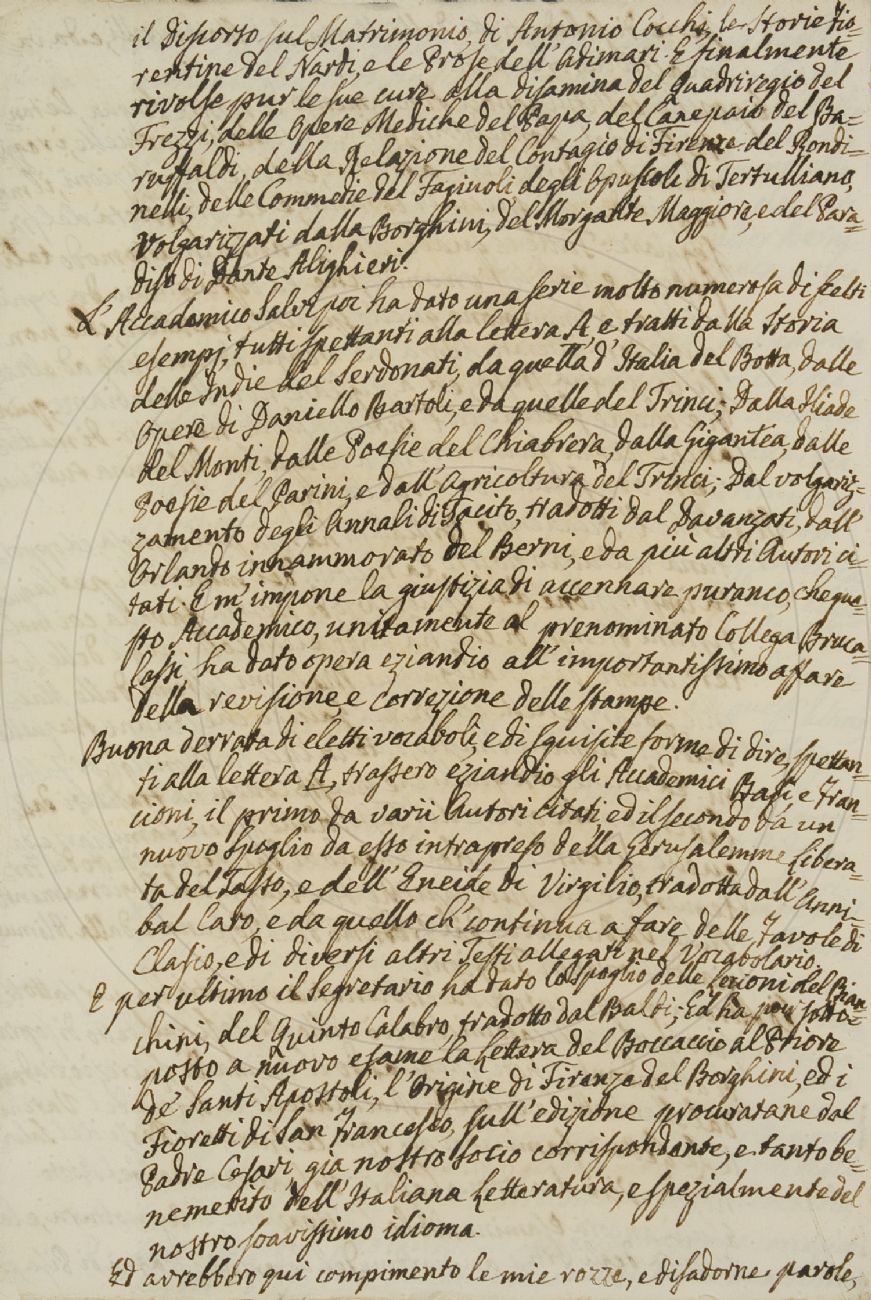 il Discorso sul Matrimonio di Antonio Cocchi, le Storie Fio=
rentine del Nardi, e le Prose dell'Adimari. E finalmente
rivolse pur le sue cure alla disamina del Quadriregio del
Frezzi, delle Opere Mediche del Papa, del Canepaio del Ba=
ruffaldi, della Relazione del Contagio di Firenze del Rondi=
nelli, delle Commedie del Fagiuoli, degli Opuscoli di Tertulliano,
volgarizzati dalla Borghini, del Morgante Maggiore, e del Para=
diso di Dante Alighieri.
L'Accademico Salvi poi ha dato una serie molto numerosa di scelti
esempj, tutti spettanti alla lettera A, e tratti dalla Storia
delle Indie del Serdonati, da quella d'Italia del Botta, dalle
Opere di Daniello Bartoli, e da quelle del Trinci; Dalla Iliade
del Monti, dalle Poesie del Chiabrera, dalla Gigantéa, dalle
Poesie del Parini, e dall'Agricoltura del Trinci; Dal volgariz=
zamento degli Annali di Tacito, tradotti dal Davanzati, dall'
Orlando innammorato del Berni, e da più altri Autori ci=
tati. E m'impone la giustizia di accennare puranco, che que=
sto Accademico, unitamente al prenominato Collega Bruca=
lassi, ha dato opera eziandio all'importantissimo affare
della revisione, e correzione delle stampe.
Buona derrata di eletti vocaboli, e di squisite forme di dire, spettan=
ti alla lettera A, trassero eziandio gli Accademici Basi, e Fran=
cioni, il primo da varii Autori citati, ed il secondo da un
nuovo spoglio da esso intrapreso della Gerusalemme Libera=
ta del Tasso, e dell'Eneide di Virgilio, tradotta dall'Anni=
bal Caro, e da quello ch'continua a fare delle Tavole di
Clasio, e di diversi altri Testi allegati nel Vocabolario.
E per ultimo il Segretario ha dato lo spoglio delle Lezioni del Bian=
chini, del Quinto Calabro, tradotto dal Baldi; Ed ha poi sotto=
posto a nuovo esame la Lettera del Boccaccio al Priore
de' Santi Apostoli, l'Origine di Firenze del Borghini, ed i
Fioretti di San Francesco, sull'edizione procuratane dal
Padre Cesari, già nostro socio corrispondente, e tanto be=
nemerito dell'Italiana Letteratura, e spezialmente del
nostro soavissimo idioma.
Ed avrebbero qui compimento le mie rozze, e disadorne parole,